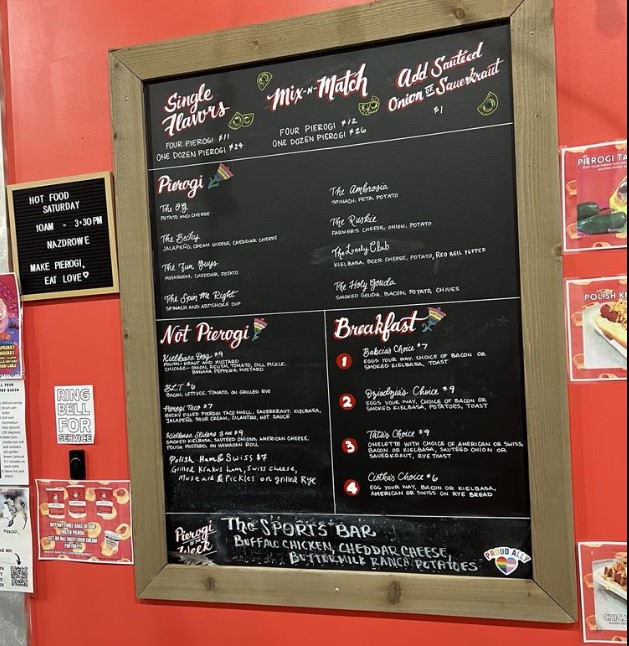 Single
Flavors
FOUR PIEROGI $11
ONE DOZEN PIEROGI $24
Mix-N-Match
FOUR PIEROGI $12
ONE DOZEN PIEROGI $26
Add Sautéed
Onion or Sauerkraut
$1
HOT FOOD
SATURDAY
10AM - 3:30PM
NAZDROWE
MAKE PIEROGI,
EAT LOVE♡
Pierogi
The OG
POTATO AND CHEESE
The Becky
JALAPEÑO, CREAM CHEESE, CHEDDAR CHEESE
The Fun Guys
MUSHROOM, CHEDDAR, POTATO
The Spin Me Right
SPINACH AND ARTICHOKE DIP
The Ambrosia
SPINACH, FETA, POTATO
The Ruskie
FARMER'S CHEESE, ONION, POTATO
The Lonely Club
KIELBASA, BEER CHEESE, POTATO, RED BELL PEPPER
The Holy Gouda
SMOKED GOUDA, BACON, POTATO, CHIVES
Not Pierogi
Kielbasa Dog $9
POLISH - KRAUT AND MUSTARD
CHICAGO - ONION, RELISH, TOMATO, DILL PICKLE,
BANANA PEPPERS, MUSTARD
BLT $6
BACON, LETTUCE, TOMATO, ON GRILLED RYE
Pierogi Taco $7
BECKY FILLED PIEROGI TACO SHELL, SAUERKRAUT, KIELBASA,
JALAPEÑO, SOUR CREAM, CILANTRO, HOT SAUCE
Kielbasa Sliders $9
SMOKED KIELBASA, SAUTÉED ONIONS, AMERICAN CHEESE,
POLISH MUSTARD, ON HAWAIIAN ROLL
Polish Ham & Swiss $7
Grilled Krakus ham, Swiss cheese,
Mustard & Pickles on grilled Rye
Breakfast
1 Babcia's Choice $7
EGGS YOUR WAY, CHOICE OF BACON OR
SMOKED KIELBASA, TOAST
2 Dziadzia's Choice $9
EGGS YOUR WAY, CHOICE OF BACON OR
SMOKED KIELBASA, POTATOES, TOAST
3 Tata's Choice $9
OMELETTE WITH CHOICE OF AMERICAN OR SWISS,
BACON OR KIELBASA, SAUTÉED ONION OR
SAUERKRAUT, RYE TOAST
4 Ciotka's Choice $6
EGG YOUR WAY, BACON OR KIELBASA,
AMERICAN OR SWISS ON RYE BREAD
Pierogi
of the
Week
The SPORTS BAR
BUFFALO CHICKEN, CHEDDAR CHEESE,
BUTTERMILK RANCH, POTATOES
PROUD ALLY
RING
BELL
FOR
SERVICE
PIEROGI TA
POLISH K